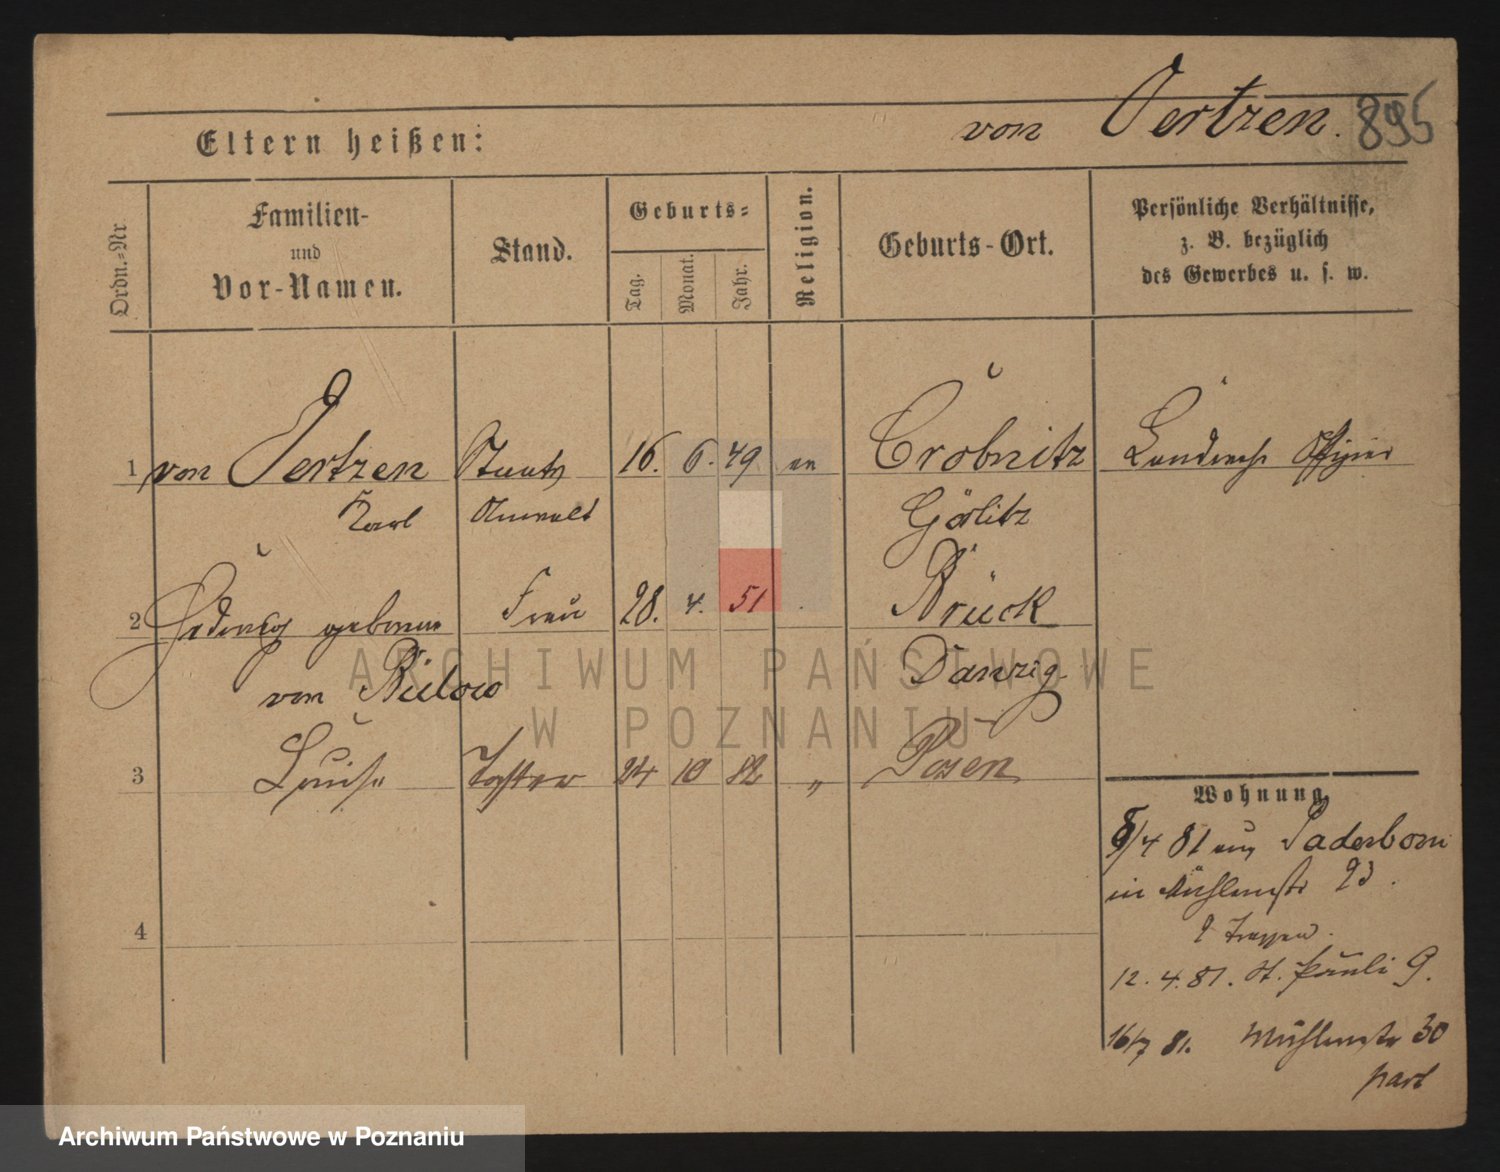 von Oertzen. 895
Eltern heißen:
Ordn.-Nr
Familien-
und
Vor-Namen.
Stand.
Geburts-
Tag.
Monat.
Jahr.
Religion.
Geburts-Ort.
Persönliche Verhältnisse,
z. B. bezüglich
des Gewerbes u. s. w.
1 von Oertzen Staats 16. 6. 49 ev Crobnitz Landwehr Offizier
Karl Anwalt Görlitz
2 Hedwig geborene Frau 28. 4. 51 Brück
von Bülow Danzig
3 Luise Tochter 24 10 82 " Posen
4
Wohnung
/4 81 aus Paderborn
in Mühlenstr 23.
2 Treppen.
12. 4. 81. St. Pauli 9.
16/7 81. Mühlenstr 30
part
ARCHIWUM PAŃSTWOWE
W POZNANIU
Archiwum Państwowe w Poznaniu